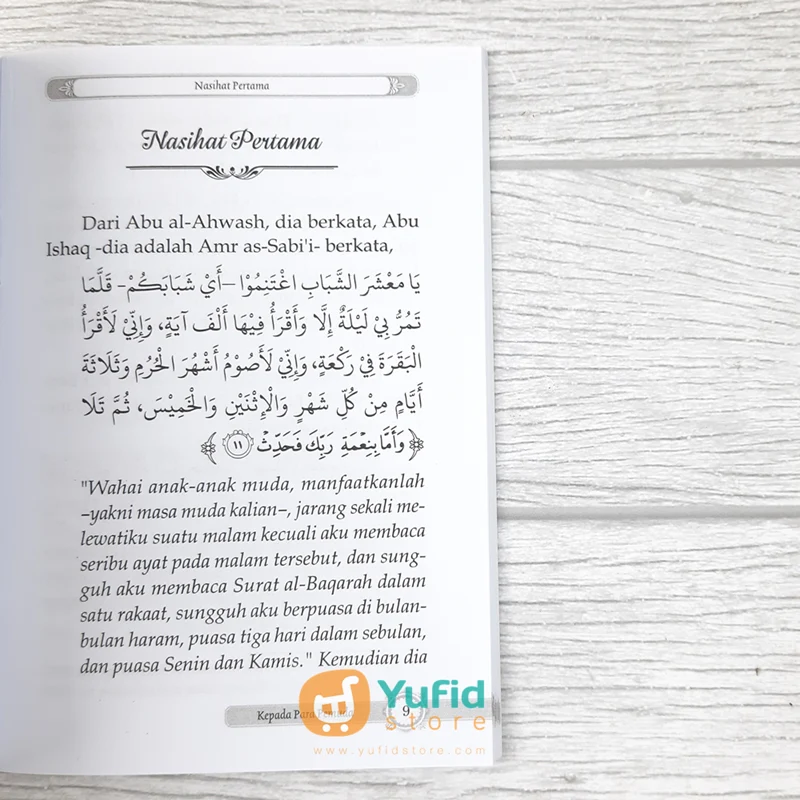 Nasihat Pertama
Nasihat Pertama
Dari Abu al-Ahwash, dia berkata, Abu
Ishaq -dia adalah Amr as-Sabi'i- berkata,
يَا مَعْشَرَ الشَّبَابِ اغْتَنِمُوْا –أَيْ شَبَابَكُمْ– قَلَّمَا
تَمُرُّ بِيْ لَيْلَةٌ إِلَّا وَأَقْرَأُ فِيْهَا أَلْفَ آيَةٍ، وَإِنِّيْ لَأَقْرَأُ
الْبَقَرَةَ فِيْ رَكْعَةٍ، وَإِنِّيْ لَأَصُوْمُ أَشْهُرَ الْحُرُمِ وَثَلَاثَةَ
أَيَّامٍ مِنْ كُلِّ شَهْرٍ وَالْإِثْنَيْنِ وَالْخَمِيْسَ، ثُمَّ تَلَا
﴿وَأَمَّا بِنِعْمَةِ رَبِّكَ فَحَدِّثْ ١١﴾
"Wahai anak-anak muda, manfaatkanlah
–yakni masa muda kalian–, jarang sekali me-
lewatiku suatu malam kecuali aku membaca
seribu ayat pada malam tersebut, dan sung-
guh aku membaca Surat al-Baqarah dalam
satu rakaat, sungguh aku berpuasa di bulan-
bulan haram, puasa tiga hari dalam sebulan,
dan puasa Senin dan Kamis." Kemudian dia
Kepada Para Pemuda 9
Yufid
store
www.yufidstore.com